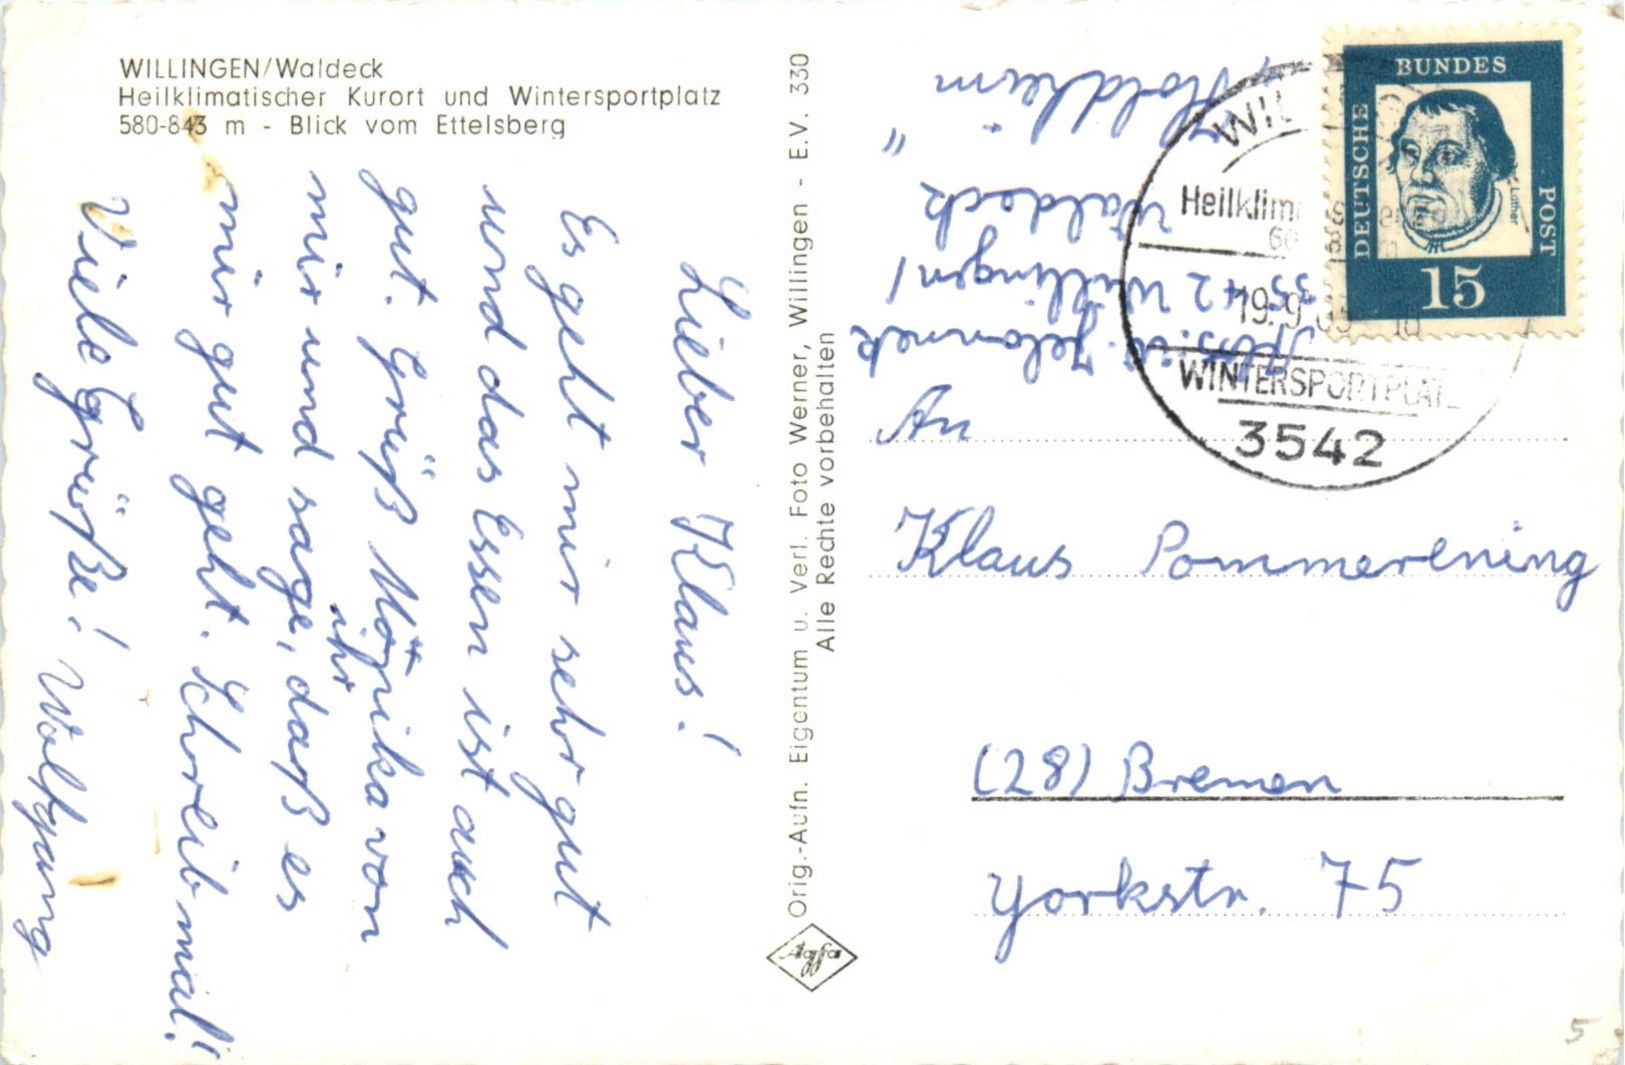 WILLINGEN/Waldeck
Heilklimatischer Kurort und Wintersportplatz
580-843 m - Blick vom Ettelsberg
Lieber Klaus!
Es geht mir sehr gut
und das Essen ist auch
gut. Grüß Monika von
mir und sage, ihr daß es
mir gut geht. Schreib mal!
Viele Grüße! Wolfgang
Orig.-Aufn. Eigentum u. Verl. Foto Werner, Willingen - E.V. 330
Alle Rechte vorbehalten
Agfa
Abs.: W. Jelonnek
3542 Willingen/
Waldeck
"Holdheim
DEUTSCHE
BUNDES
POST
Luther
15
WIL
Heilklim
19.9.65
WINTERSPORTPLATZ
3542
An
Klaus Pommerening
(28) Bremen
Yorkstr. 75
5